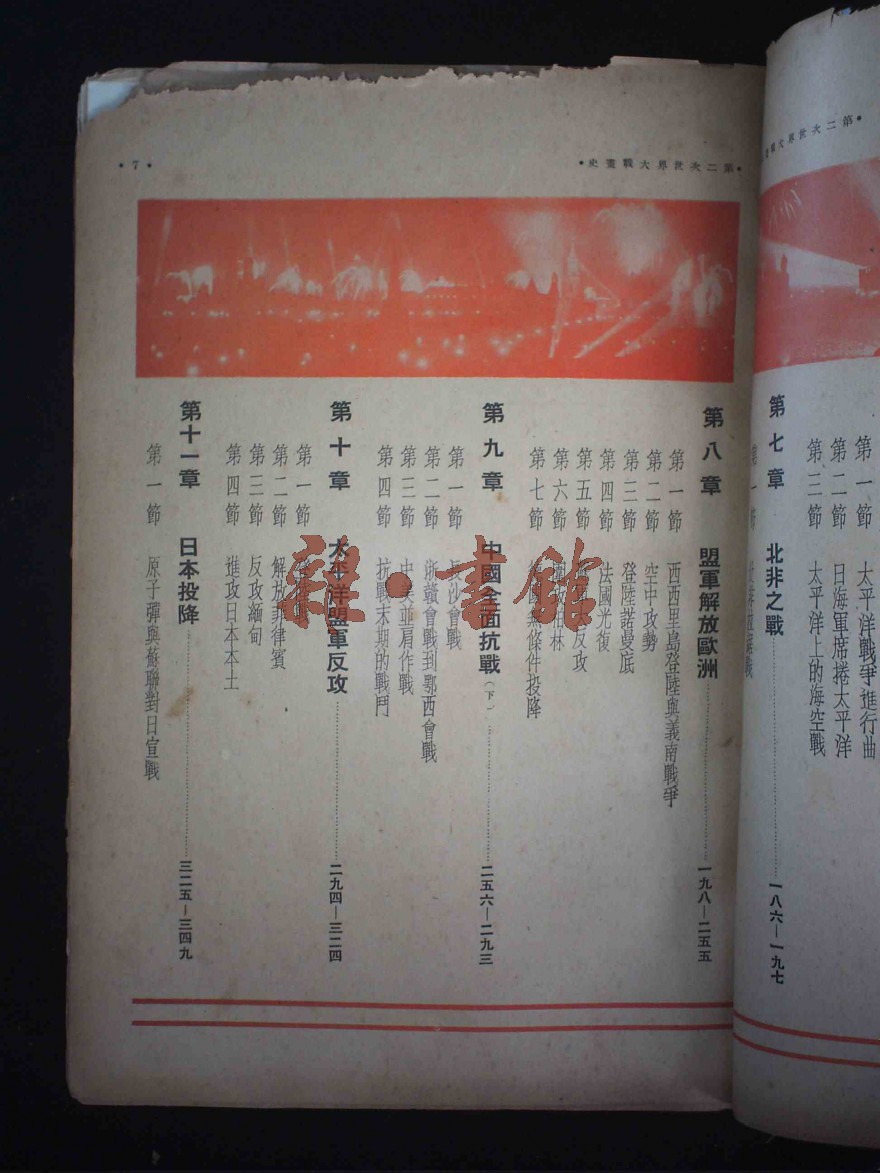 •第二次世界大戰畫史•
•7•
第一節 太平洋戰爭進行曲
第二節 日海軍席捲太平洋
第三節 太平洋上的海空戰
第七章 北非之戰 一八六—一九七
第一節
第八章 盟軍解放歐洲 一九八—二五五
第一節 西西里島登陸與義南戰爭
第二節 空中攻勢
第三節 登陸諾曼底
第四節 法國光復
第五節 大反攻
第六節 柏林
第七節 無條件投降
第九章 中國全面抗戰(下) 二五六—二九三
第一節 長沙會戰
第二節 浙贛會戰到鄂西會戰
第三節 中美並肩作戰
第四節 抗戰末期的戰鬥
第十章 太平洋盟軍反攻 二九四—三二四
第一節
第二節 解放菲律賓
第三節 反攻緬甸
第四節 進攻日本本土
第十一章 日本投降 三二五—三四九
第一節 原子彈與蘇聯對日宣戰
•第二次世界大戰畫
書館